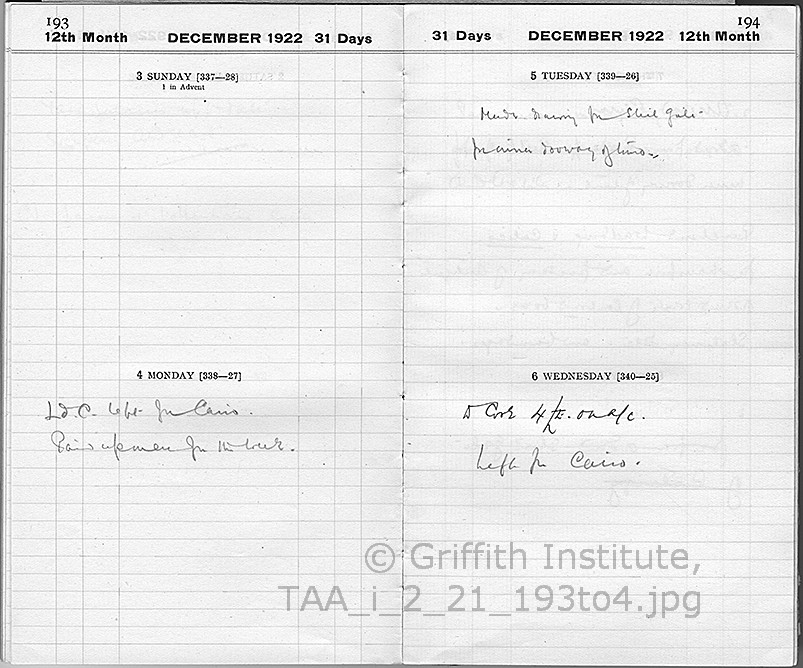 193
12th Month DECEMBER 1922 31 Days
3 SUNDAY [337—28]
1 in Advent
4 MONDAY [338—27]
Ld. C. left for Cairo.
Paid up men for the week.
194
31 Days DECEMBER 1922 12th Month
5 TUESDAY [339—26]
Made drawing for Steel Gate
for inner doorway of tomb.
6 WEDNESDAY [340—25]
Cook 4 £E. on a/c.
Left for Cairo.
© Griffith Institute,
TAA_i_2_21_193to4.jpg